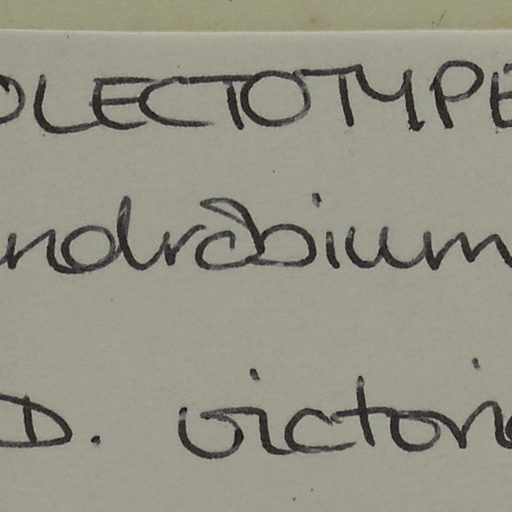 OLECTOTYPE
ndrobium
D. victori